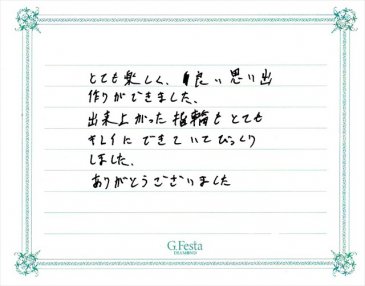 とても楽しく、良い思い出
作りができました。
出来上がった指輪もとても
キレイにできていてびっくり
しました。
ありがとうございました
G.Festa
DIAMOND